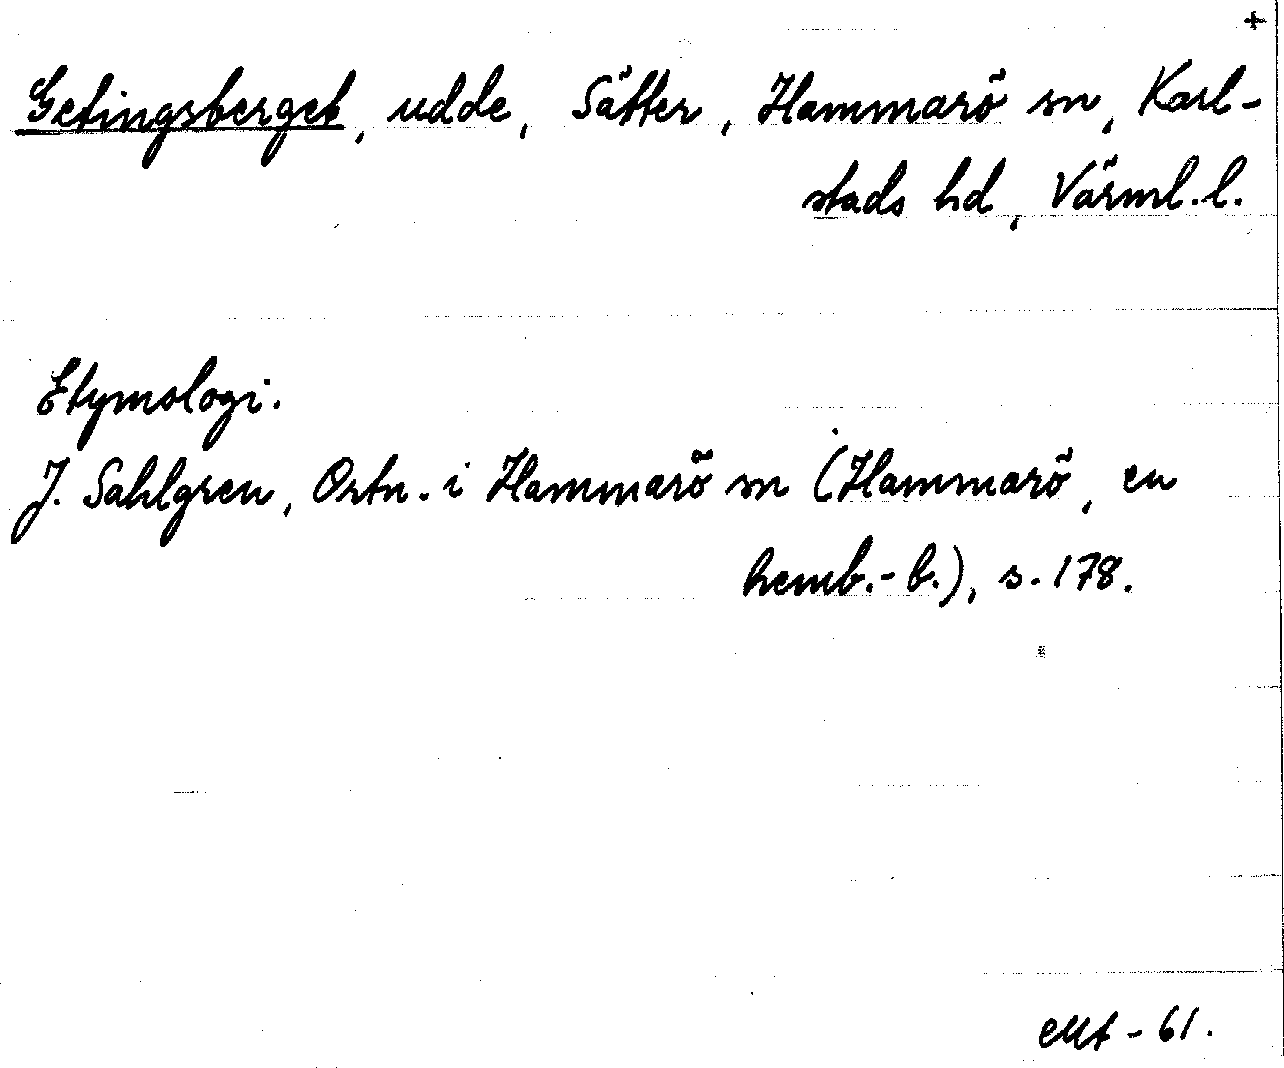 +
Getingsberget, udde, Sätter, Hammarö sn, Karl-
stads hd, Värml. l.
Etymologi.
J. Sahlgren, Ortn. i Hammarö sn (Hammarö, en
hemb.-b.), s. 178.
-61.